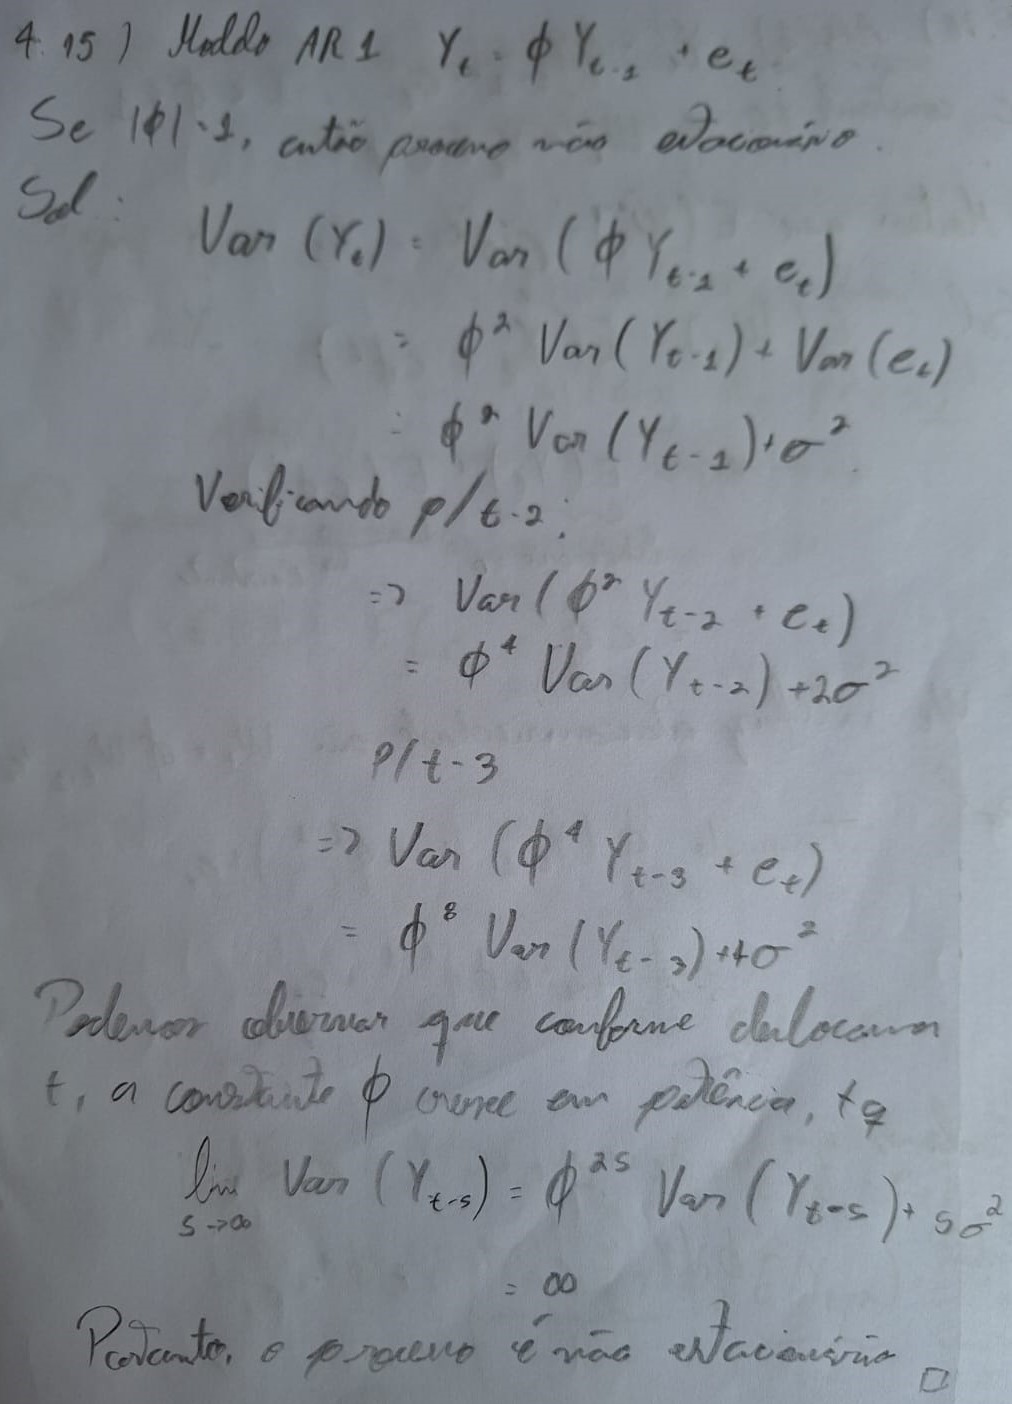 4.15) Modelo AR1 Y_t = ϕ Y_{t-1} + e_t
Se |ϕ| = 1, então processo não estacionário.
Sol:
Var (Y_t) = Var (ϕ Y_{t-1} + e_t)
= ϕ² Var (Y_{t-1}) + Var (e_t)
= ϕ² Var (Y_{t-1}) + σ²
Verificando p/ t-2:
=> Var (ϕ² Y_{t-2} + e_t)
= ϕ⁴ Var (Y_{t-2}) + 2σ²
P/ t-3
=> Var (ϕ⁴ Y_{t-3} + e_t)
= ϕ⁸ Var (Y_{t-3}) + 4σ²
Podemos observar que conforme deslocamos
t, a constante ϕ cresce em potência, tq
lim_{s→∞} Var (Y_{t-s}) = ϕ^{2s} Var (Y_{t-s}) + sσ²
= ∞
Portanto, o processo é não estacionário □